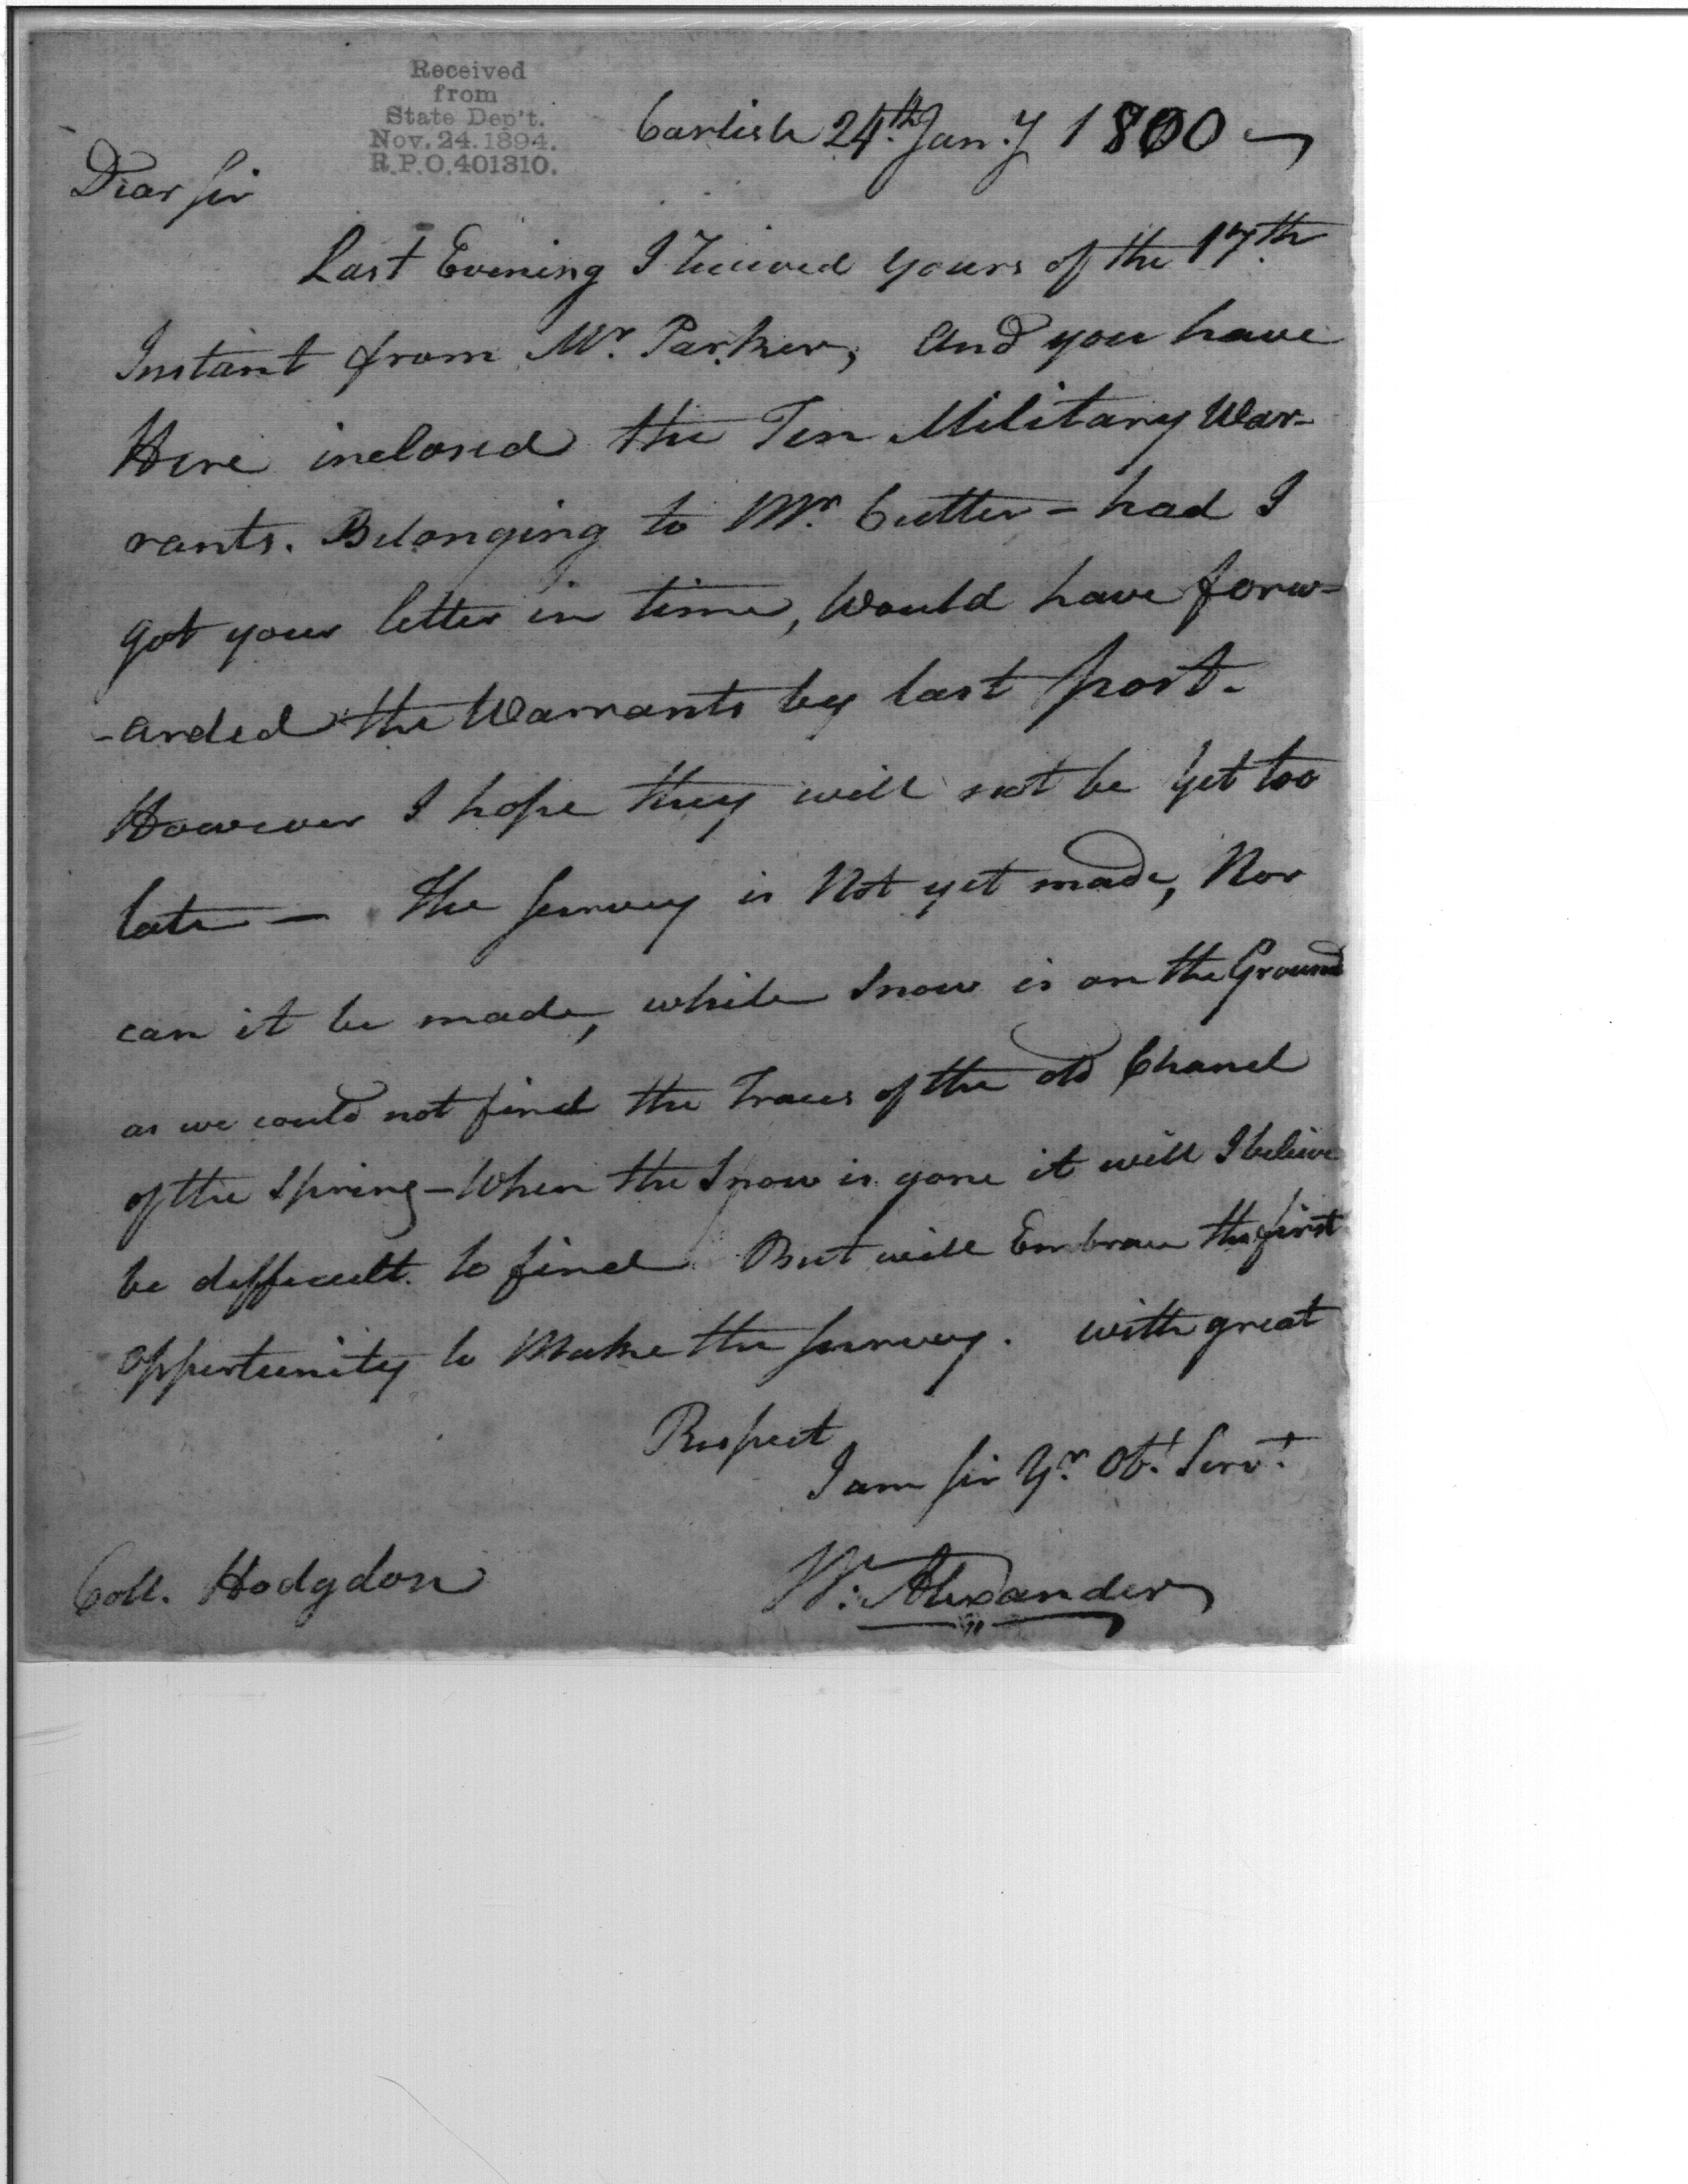 Received
from
State Dep't.
Nov. 24. 1894.
R.P.O. 401310.
Carlisle 24.th Jan.y 1800
Dear Sir
Last Evening I Received yours of the 17th
Instant from Mr. Parker, And you have
Here inclosed the Ten Military War-
rants. Belonging to Mr. Cutter - had I
got your letter in time, Would have forw-
-arded the Warrants by last post.
However I hope they will not be yet too
late — The Survey is Not yet made, Nor
can it be made, while Snow is on the Ground
as we could not find the Traces of the old Chanel
of the Spring - When the Snow is gone it will I believe
be difficult to find But will Embrace the first
opportunity to Make the Survey. with great
Respect
I am Sir Yr. Ob.t Serv.t
W. Alexander
Coll. Hodgdon